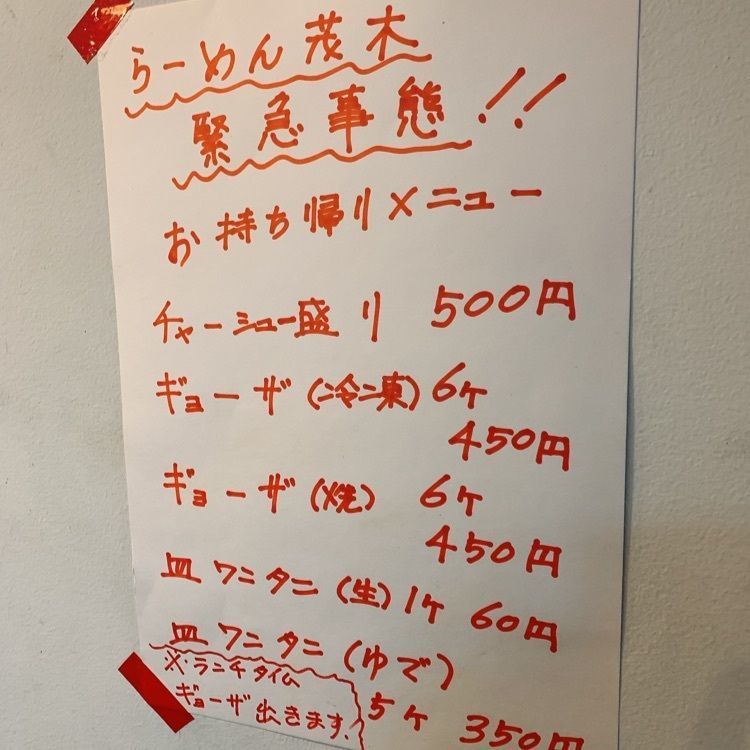 らーめん茂木
緊急事態!!
お持ち帰りメニュー
チャーシュー盛り 500円
ギョーザ(冷凍)6ヶ
450円
ギョーザ(焼) 6ヶ
450円
皿ワンタン(生)1ヶ 60円
皿ワンタン(ゆで)
5ヶ 350円
※・ランチタイム
ギョーザ出きます、